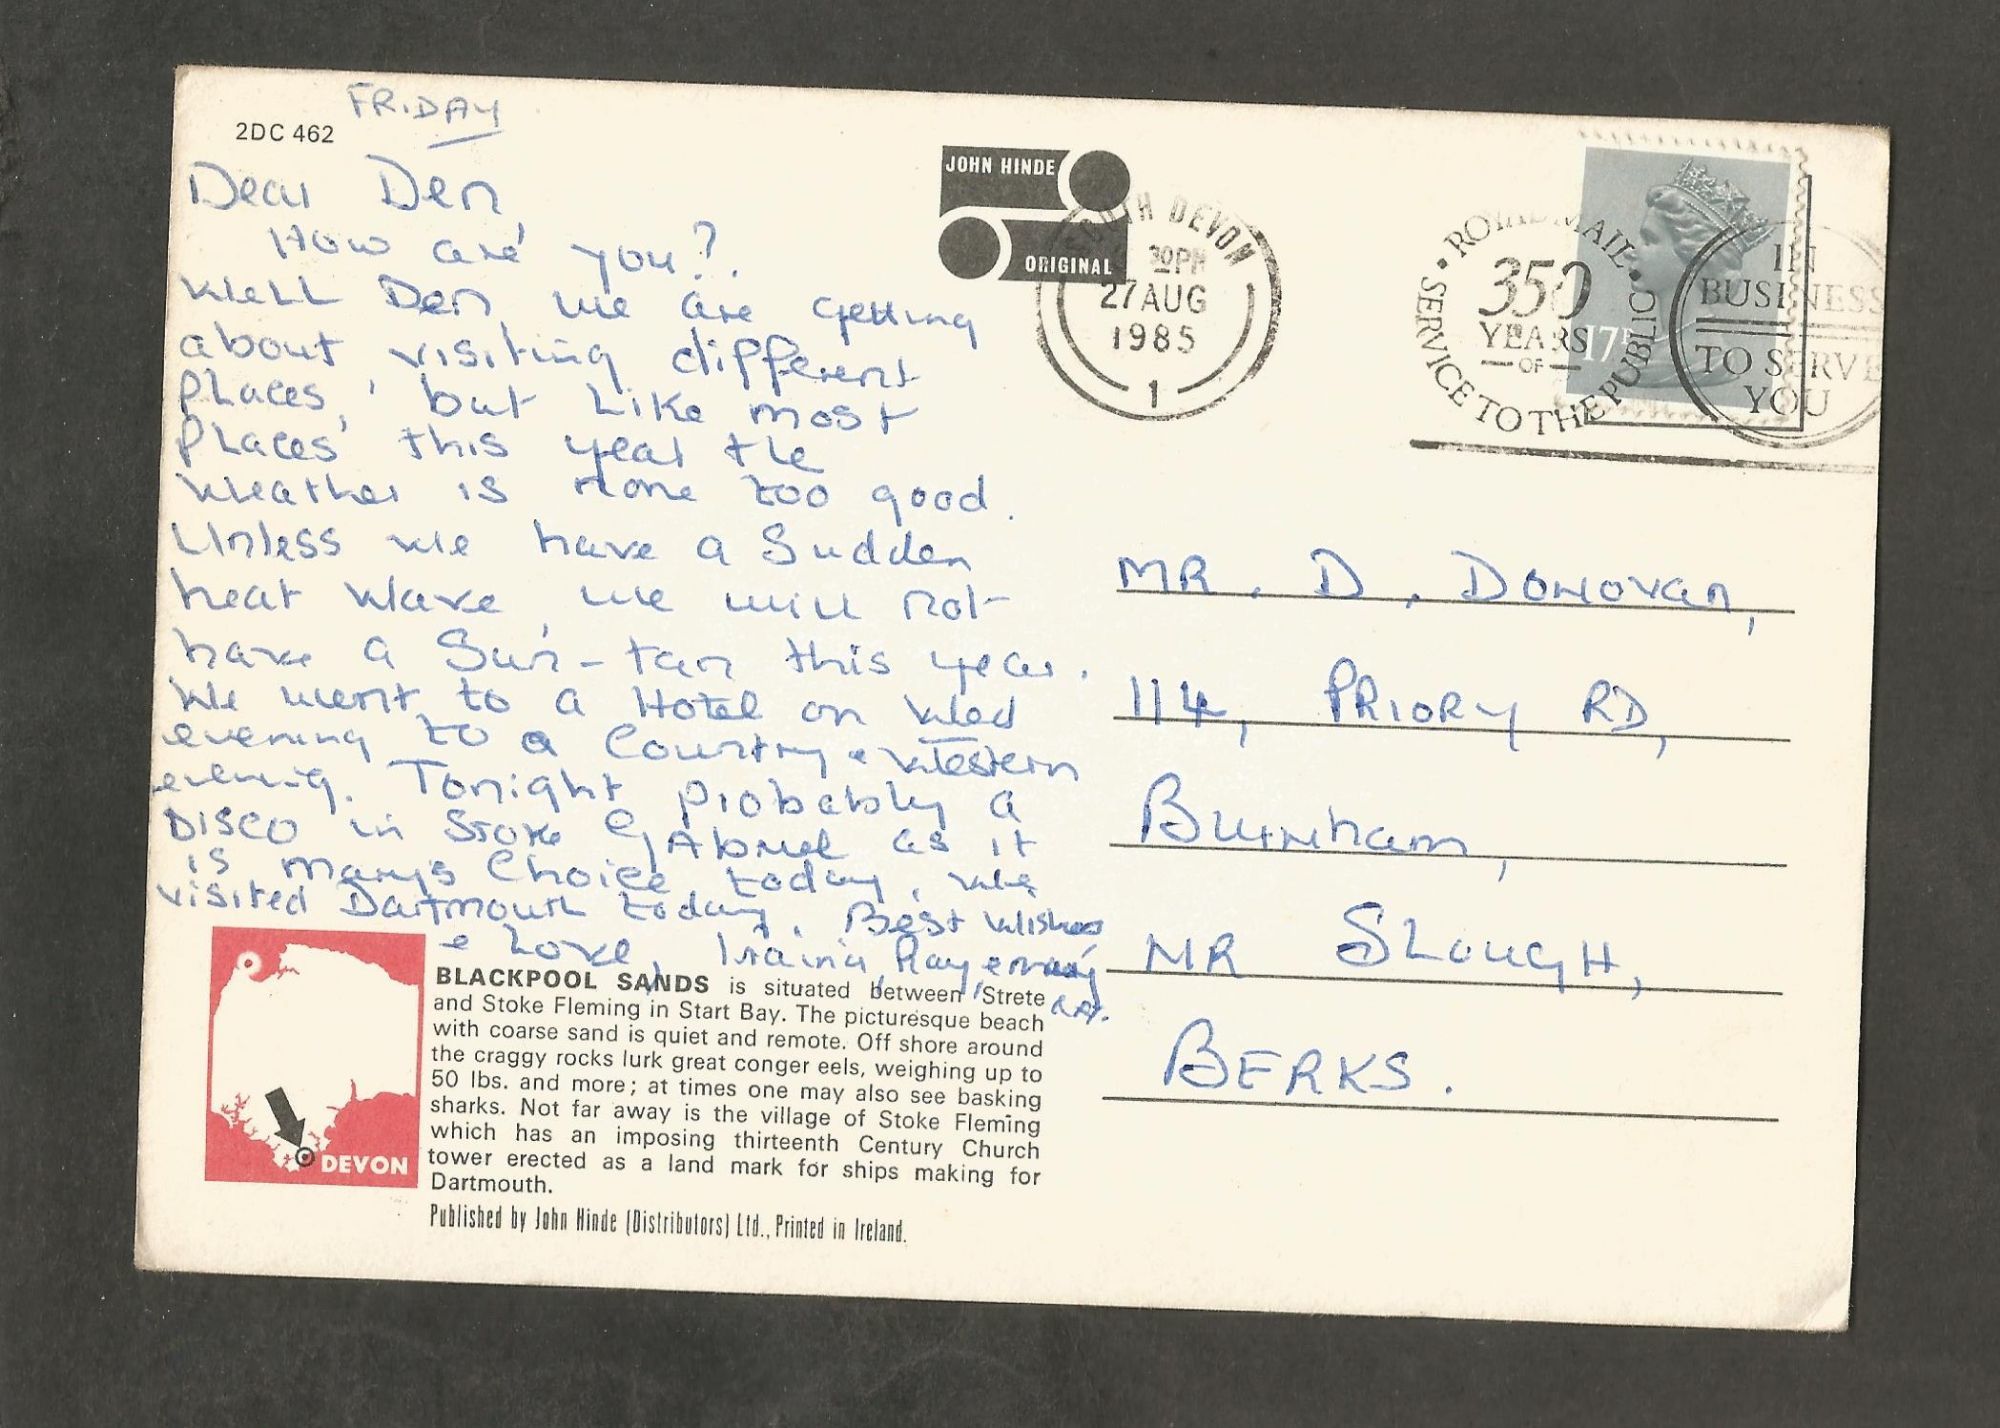 2DC 462
FRIDAY
Dear Den,
How are you?
Well Den we are getting
about visiting different
places, but like most
places this year the
weather is none too good.
Unless we have a Sudden
heat wave, we will not
have a Sun-tan this year.
We went to a Hotel on Wed
evening to a Country & Western
evening. Tonight probably a
DISCO in Stoke Gabriel as it
is Mary's Choice today, we
visited Dartmouth today. Best Wishes
& Love, Ray
JOHN HINDE
ORIGINAL
SOUTH DEVON
30PM
27 AUG
1985
1
ROYAL MAIL
350
YEARS
OF
SERVICE TO THE PUBLIC
17P
IN
BUSINESS
TO SERVE
YOU
MR. D. DONOVAN,
114, PRIORY RD,
Burnham,
NR SLOUGH,
BERKS.
DEVON
BLACKPOOL SANDS is situated between Strete
and Stoke Fleming in Start Bay. The picturesque beach
with coarse sand is quiet and remote. Off shore around
the craggy rocks lurk great conger eels, weighing up to
50 lbs. and more; at times one may also see basking
sharks. Not far away is the village of Stoke Fleming
which has an imposing thirteenth Century Church
tower erected as a land mark for ships making for
Dartmouth.
Published by John Hinde (Distributors) Ltd., Printed in Ireland.